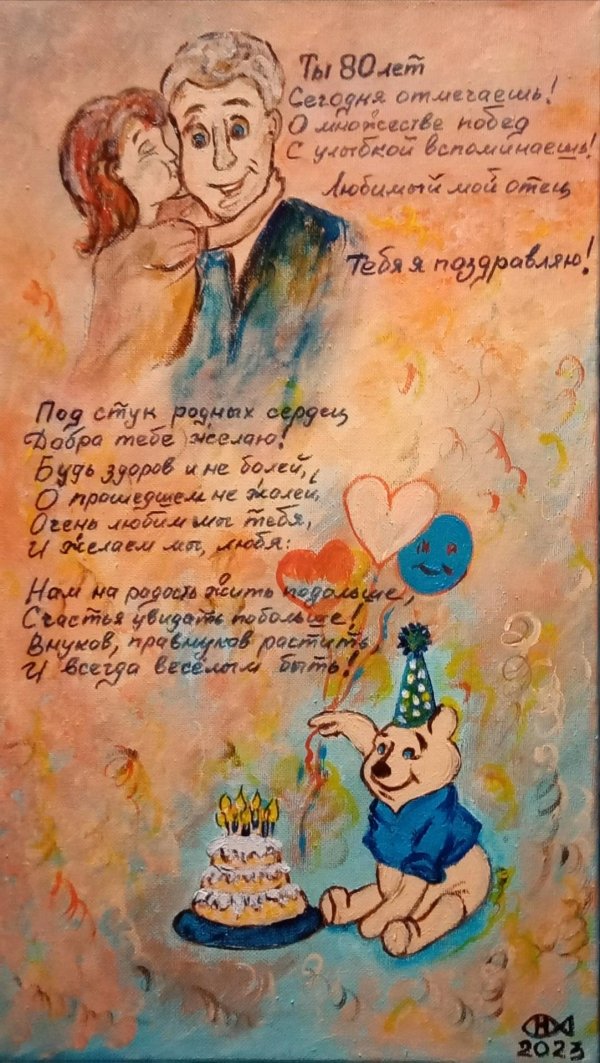 Ты 80 лет
Сегодня отмечаешь!
О множестве побед
С улыбкой вспоминаешь!
Любимый мой отец
Тебя я поздравляю!
Под стук родных сердец
Добра тебе желаю!
Будь здоров и не болей,
О прошедшем не жалей,
Очень любим мы тебя,
И желаем мы, любя:
Нам на радость жить подольше,
Счастья увидать побольше!
Внуков, правнуков растить,
И всегда весёлым быть!
2023